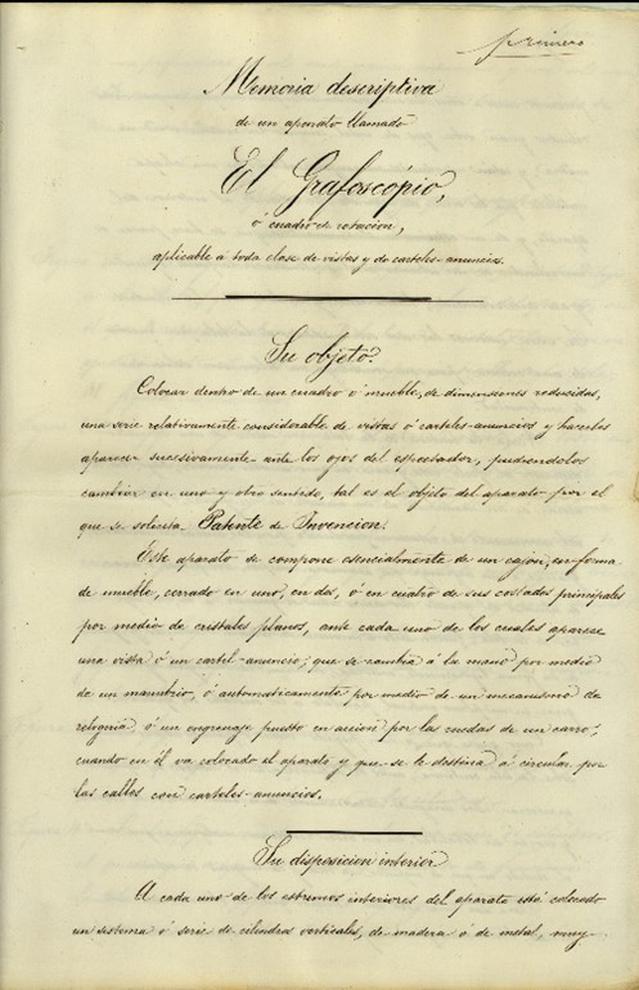 primero
Memoria descriptiva
de un aparato llamado
El Grafoscópio,
ó cuadro de rotacion,
aplicable á toda clase de vistas y de carteles-anuncios.
Su objeto.
Colocar dentro de un cuadro ó mueble, de dimensiones reducidas,
una serie relativamente considerable de vistas ó carteles-anuncios y hacerlos
aparecer sucesivamente ante los ojos del espectador, pudiendolos
cambiar en uno y otro sentido, tal es el objeto del aparato por el
que se solicita Patente de Invencion.
Este aparato se compone esencialmente de un cajon, en forma
de mueble, cerrado en uno, en dos, ó en cuatro de sus costados principales
por medio de cristales planos, ante cada uno de los cuales aparece
una vista ó un cartel-anuncio; que se cambia á la mano por medio
de un manubrio, ó automaticamente por medio de un mecanismo de
relogeria, ó un engrenaje puesto en accion por las ruedas de un carro,
cuando en él va colocado el aparato y que se le destina á circular por
las calles con carteles-anuncios.
Su disposicion interior
A cada uno de los estremos interiores del aparato está colocado
un sistema ó serie de cilindros verticales, de madera ó de metal, muy